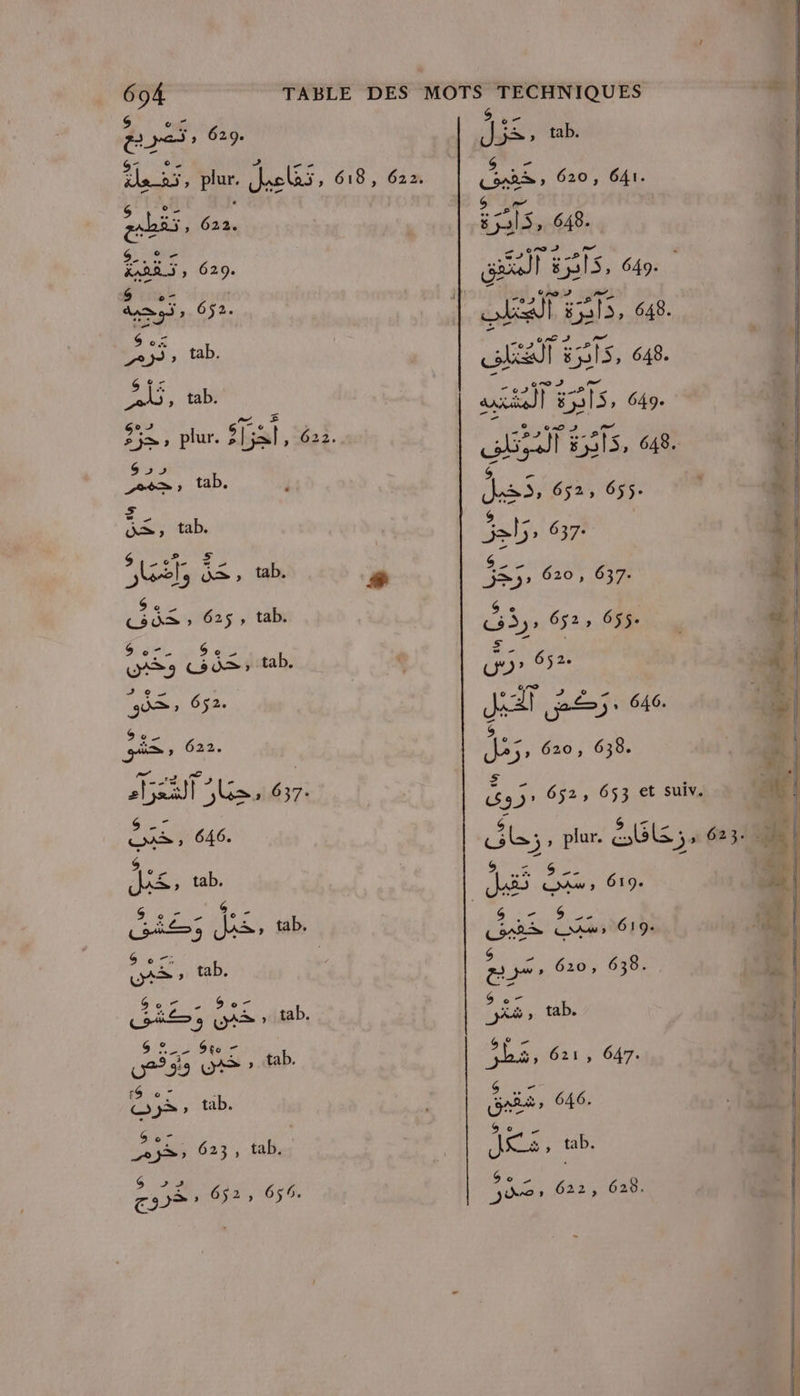 694 TABLE DES MOTS TECHNIQUES
تَصْرِيعٌ, 629.
تَفْعِلَةٌ, plur. تَفَاعِيلُ, 618, 622.
تَقْطِيعٌ, 622.
تَقْفِيَةٌ, 629.
تَوْجِيهٌ, 652.
ثَرْمٌ, tab.
ثَلْمٌ, tab.
جُزْءٌ, plur. أَجْزَاءٌ, 622.
جَمَمٌ, tab.
حَذٌّ, tab.
حَذٌّ وَإِضْمَارٌ, tab.
حَذْفٌ, 625, tab.
حَذْفٌ وَخَبْنٌ, tab.
حَذْوٌ, 652.
حَشْوٌ, 622.
حِمَارُ ٱلشُّعَرَاءِ, 637.
خَبَبٌ, 646.
خَبْلٌ, tab.
خَبْلٌ وَكَشْفٌ, tab.
خَبْنٌ, tab.
خَبْنٌ وَكَشْفٌ, tab.
خَبْنٌ وَوَقْصٌ, tab.
خَرْبٌ, tab.
خَرْمٌ, 623, tab.
خُرُوجٌ, 652, 656.
خَزْلٌ, tab.
خَفِيفٌ, 620, 641.
دَائِرَةٌ, 648.
دَائِرَةُ ٱلْمُتَّفِقِ, 649.
دَائِرَةُ ٱلْمُجْتَلَبِ, 648.
دَائِرَةُ ٱلْمُخْتَلِفِ, 648.
دَائِرَةُ ٱلْمُشْتَبِهِ, 649.
دَائِرَةُ ٱلْمُوتَلِفِ, 648.
دَخِيلٌ, 652, 655.
رَاجِزٌ, 637.
رَجَزٌ, 620, 637.
رِدْفٌ, 652, 655.
رَسٌّ, 652.
رَكْضُ ٱلْخَيْلِ, 646.
رَمَلٌ, 620, 638.
رَوِىٌّ, 652, 653 et suiv.
زِحَافٌ, plur. زِحَافَاتٌ, 623.
سَبَبٌ ثَقِيلٌ, 619.
سَبَبٌ خَفِيفٌ, 619.
سَرِيعٌ, 620, 638.
شَتْرٌ, tab.
شَطْرٌ, 621, 647.
شَقِيقٌ, 646.
شَكْلٌ, tab.
صَدْرٌ, 622, 628.